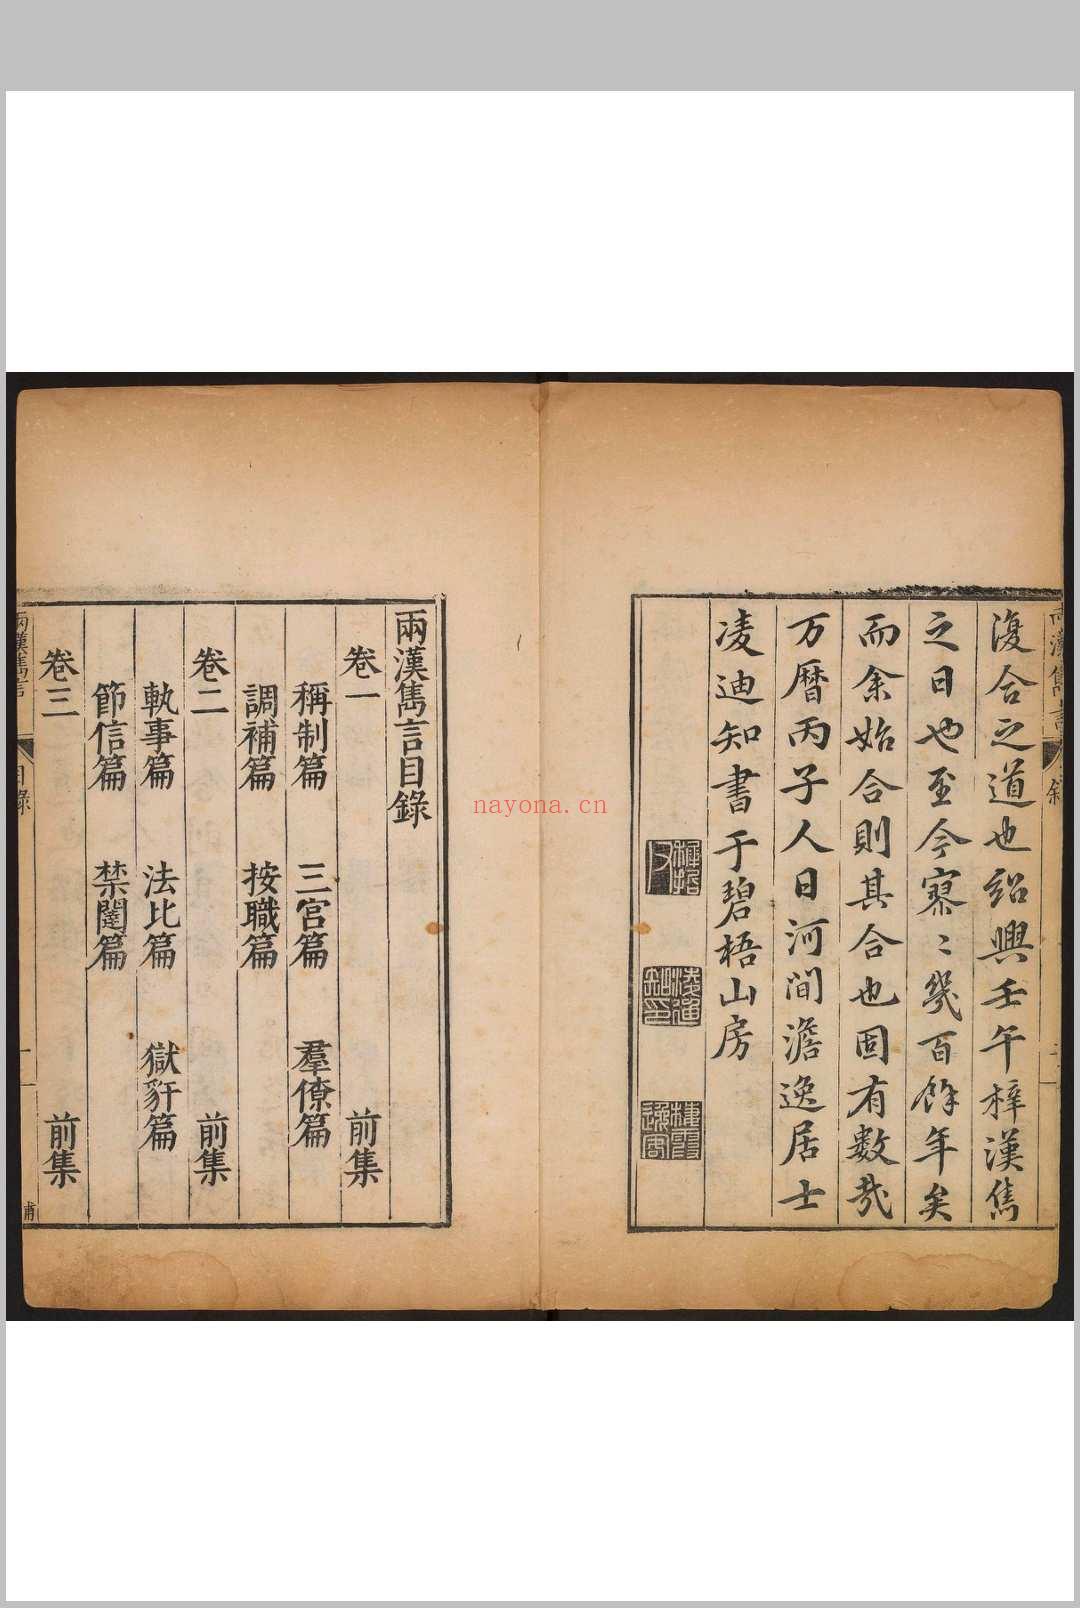 復合之道也紹興壬午梓漢雋
之日也至今寥〻幾百餘年矣
而余始合則其合也固有數哉
万曆丙子人日河間澹逸居士
凌迪知書于碧梧山房
兩漢雋言目錄
卷一 前集
稱制篇 三宫篇 羣僚篇
調補篇 按職篇
卷二 前集
執事篇 法比篇 獄豻篇
節信篇 禁闥篇
卷三 前集
兩漢雋言 目錄
nayona.cn